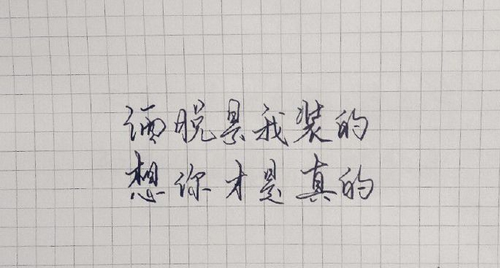 洒脱是我装的
想你才是真的